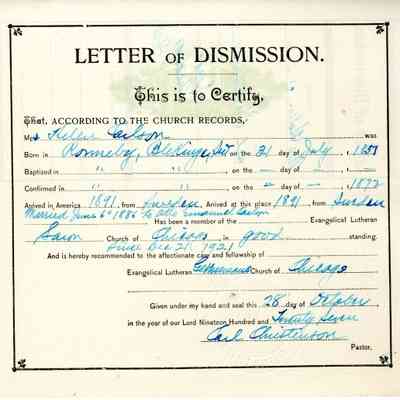 LETTER OF DISMISSION.
This is to Certify,
That, ACCORDING TO THE CHURCH RECORDS,
Mrs Helen Carlson was
Born in Ronneby, Blekinge, on the 21 day of July, 185
Baptized in " " on the — day of —, 1
Confirmed in " " on the — day of —, 1872
Arrived in America 1891, from Sweden. Arrived at this place 1891, from Sweden
Married June 6th 1886 to Otto Emanuel Carlson
Has been a member of the Evangelical Lutheran
Saron Church of Chicago in good standing.
Since Dec 21, 1921
And is hereby recommended to the affectionate care and fellowship of
Evangelical Lutheran Church of Chicago
Given under my hand and seal this 28 day of October,
in the year of our Lord Nineteen Hundred and Twenty Seven
Carl Christenson
Pastor.